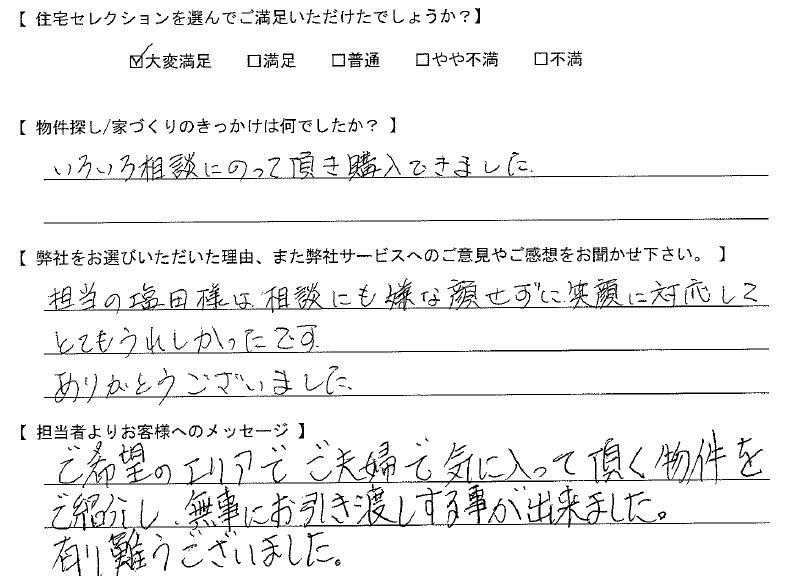 【 住宅セレクションを選んでご満足いただけたでしょうか?】
☑大変満足 □満足 □普通 □やや不満 □不満
【 物件探し/家づくりのきっかけは何でしたか? 】
いろいろ相談にのって頂き購入できました
【 弊社をお選びいただいた理由、また弊社サービスへのご意見やご感想をお聞かせ下さい。 】
担当の塩田様は相談にも嫌な顔せずに笑顔に対応して
とてもうれしかったです
ありがとうございました
【 担当者よりお客様へのメッセージ 】
ご希望のエリアでご夫婦で気に入って頂く物件を
ご紹介し、無事にお引き渡しする事が出来ました。
有り難うございました。